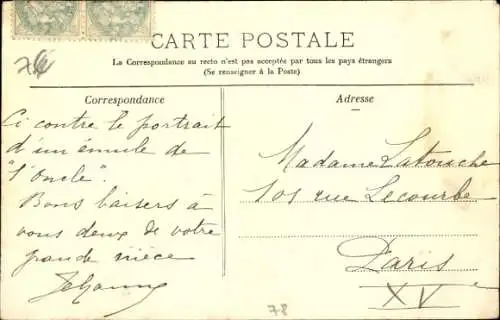 76
CARTE POSTALE
La Correspondance au recto n'est pas acceptée par tous les pays étrangers
(Se renseigner à la Poste)
Correspondance
Ci contre le portrait
d'un émule de
"l'oncle".
Bons baisers à
vous deux de votre
grande nièce
Jehanne
Adresse
Madame Latouche
101 rue Lecourbe
Paris
XV
78